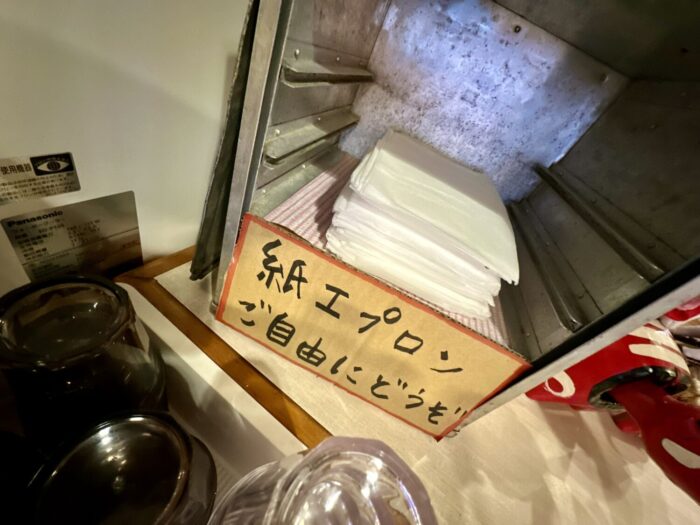 紙エプロン
ご自由にどうぞ
使用機器
Panasonic